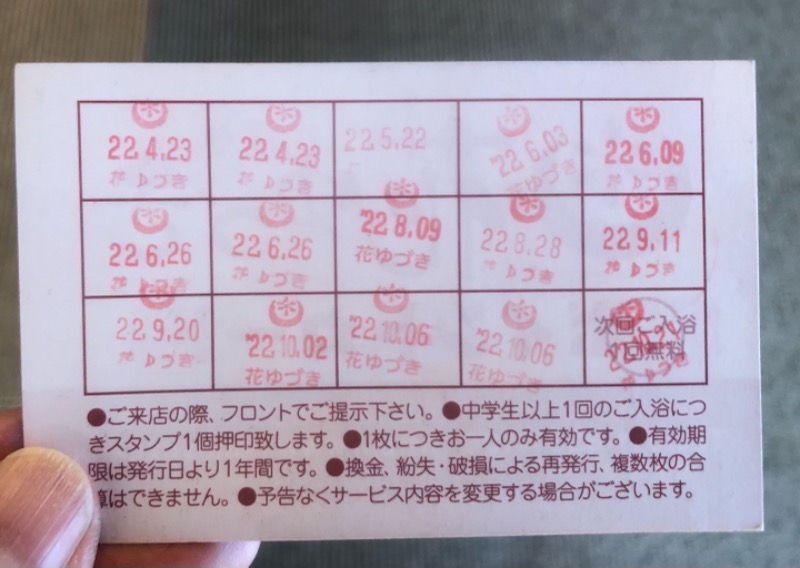 22.4.23
花ゆづき
22.4.23
花ゆづき
22.5.22
'22.6.03
花ゆづき
22.6.09
花ゆづき
22.6.26
花ゆづき
22.6.26
花ゆづき
'22.8.09
花ゆづき
22.8.28
花ゆづき
22.9.11
花ゆづき
22.9.20
花ゆづき
'22.10.02
花ゆづき
'22.10.06
花ゆづき
'22.10.06
花ゆづき
次回ご入浴
1回無料
●ご来店の際、フロントでご提示下さい。●中学生以上1回のご入浴につ
きスタンプ1個押印致します。●1枚につきお一人のみ有効です。●有効期
限は発行日より1年間です。●換金、紛失・破損による再発行、複数枚の合
算はできません。●予告なくサービス内容を変更する場合がございます。